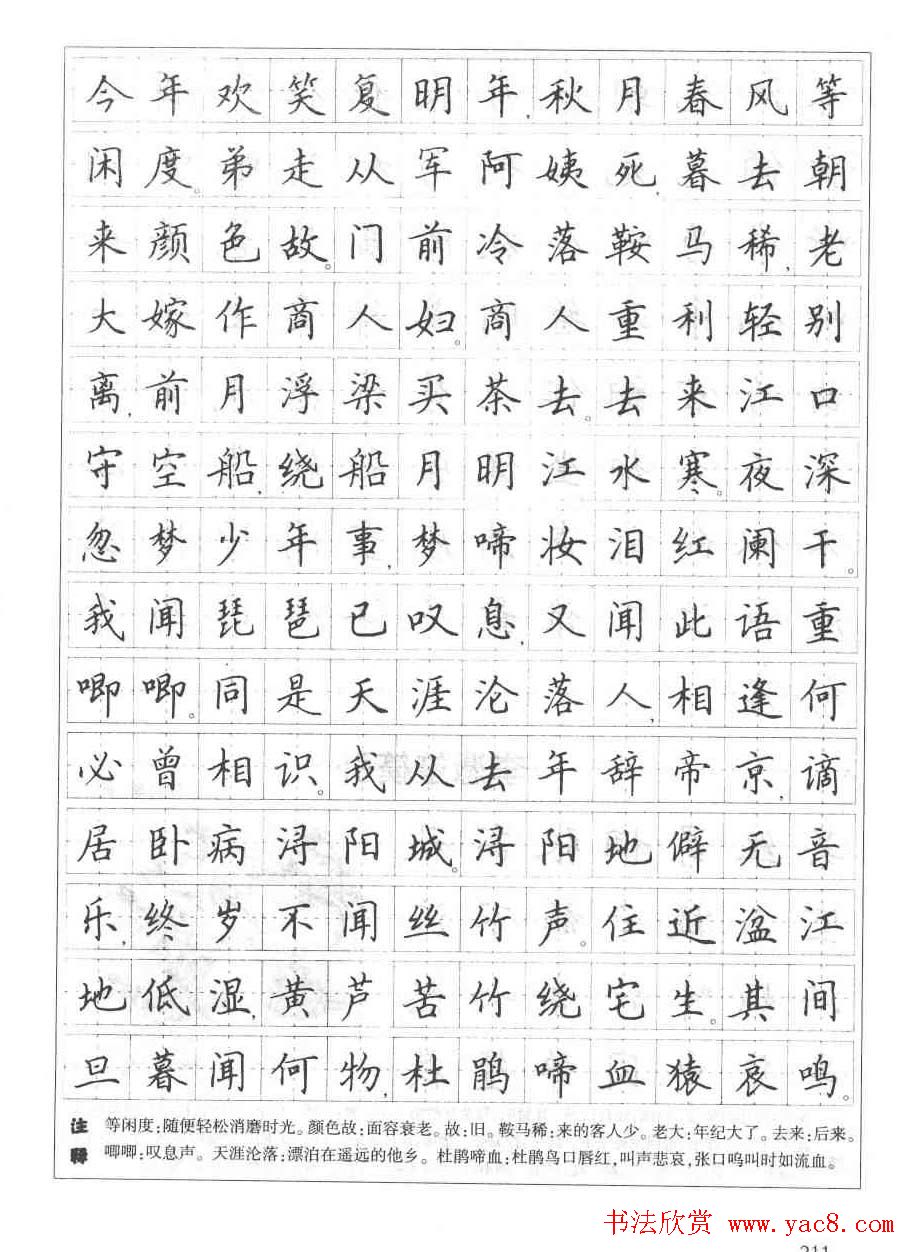 今年欢笑复明年,秋月春风等
闲度。弟走从军阿姨死,暮去朝
来颜色故。门前冷落鞍马稀,老
大嫁作商人妇。商人重利轻别
离,前月浮梁买茶去。去来江口
守空船,绕船月明江水寒。夜深
忽梦少年事,梦啼妆泪红阑干。
我闻琵琶已叹息,又闻此语重
唧唧。同是天涯沦落人,相逢何
必曾相识。我从去年辞帝京,谪
居卧病浔阳城。浔阳地僻无音
乐,终岁不闻丝竹声。住近湓江
地低湿,黄芦苦竹绕宅生。其间
旦暮闻何物,杜鹃啼血猿哀鸣。
注释 等闲度:随便轻松消磨时光。颜色故:面容衰老。故:旧。鞍马稀:来的客人少。老大:年纪大了。去来:后来。
唧唧:叹息声。天涯沦落:漂泊在遥远的他乡。杜鹃啼血:杜鹃鸟口唇红,叫声悲哀,张口鸣叫时如流血。
书法欣赏 www.yac8.com
211